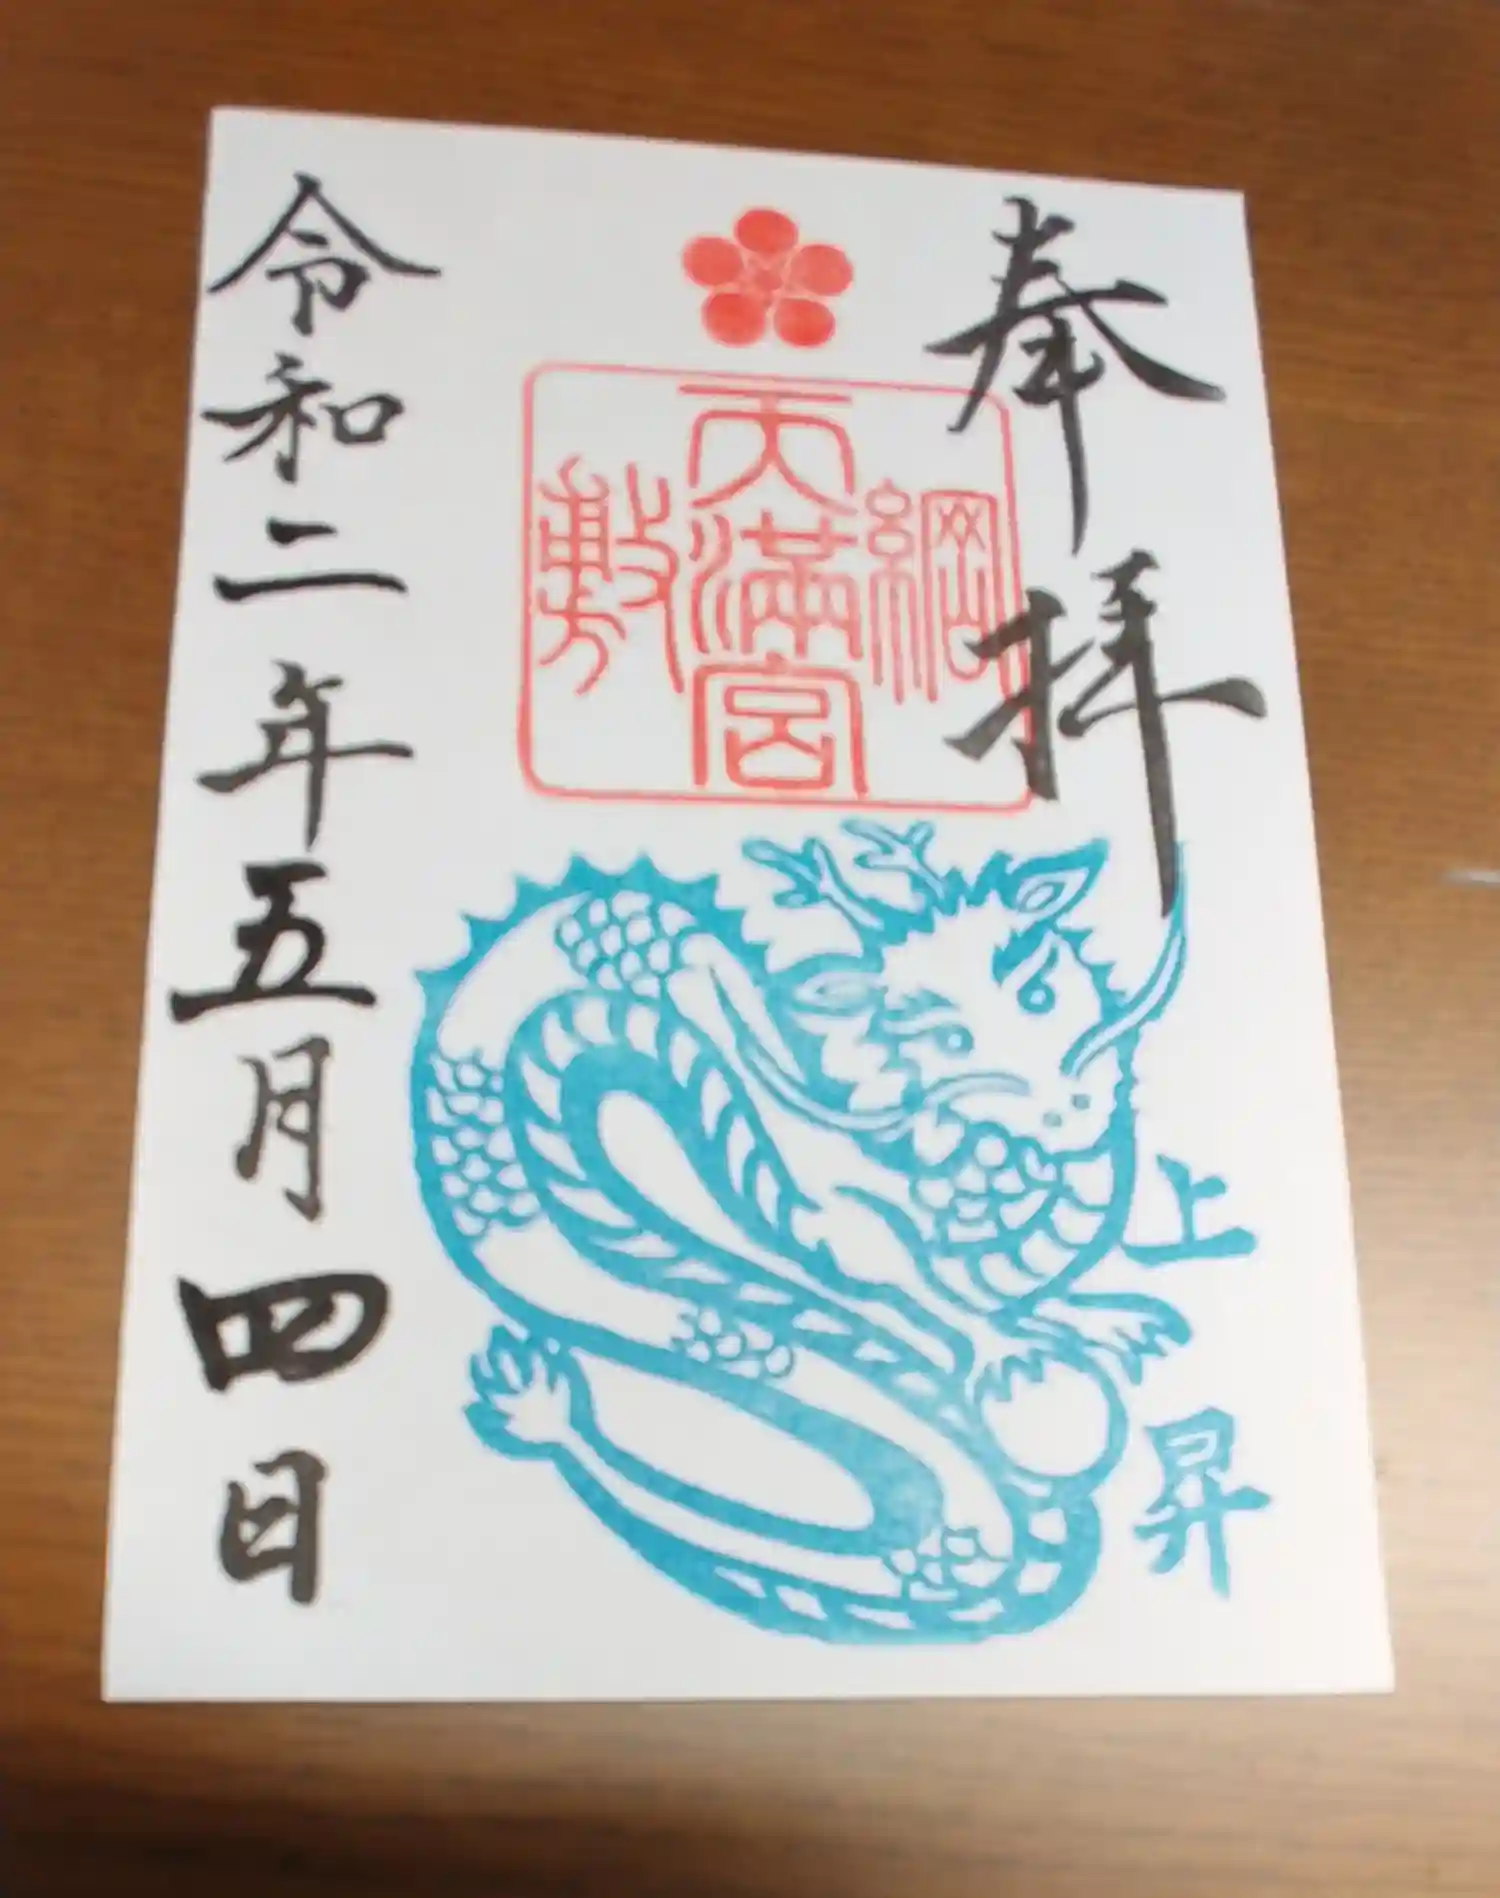 奉拝
上昇
綱
天満宮
敷
令和二年五月四日